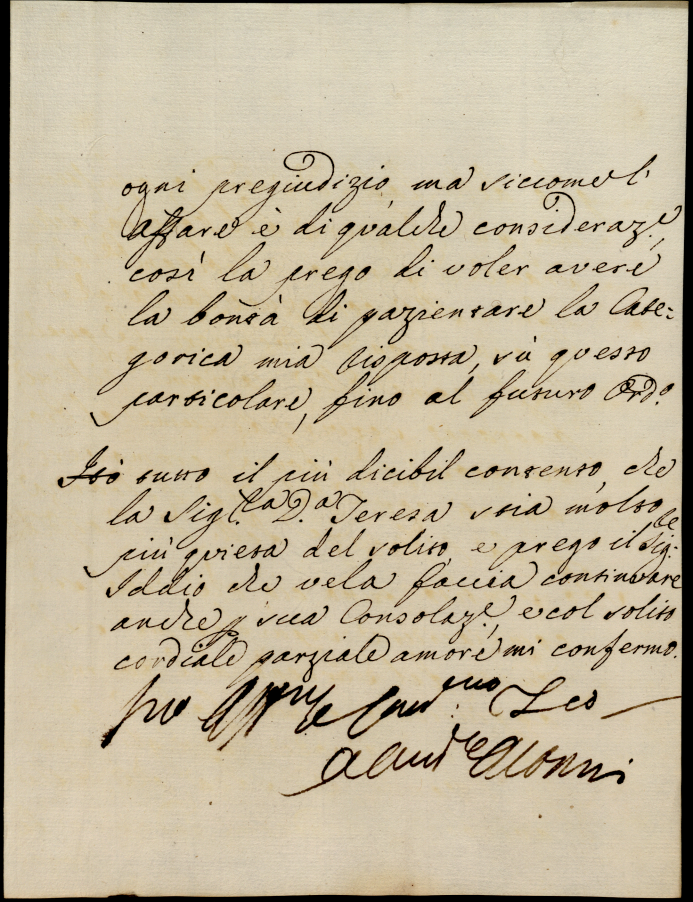 ogni pregiudizio ma siccome l'
affare è di qualche consideraz.e,
così la prego di voler avere
la bontà di pazientare la Cate=
gorica mia risposta, sù questo
particolare, fino al futuro Ord.o
Hò tutto il più dicibil contento, che
la Sig.ra D.a Teresa stia molto
più quieta del solito, e prego il Sig.re
Iddio che vela faccia continuare
anche p sua Consolaz.e, e col solito
cordiale parziale amore mi confermo.
Suo Aff.mo e